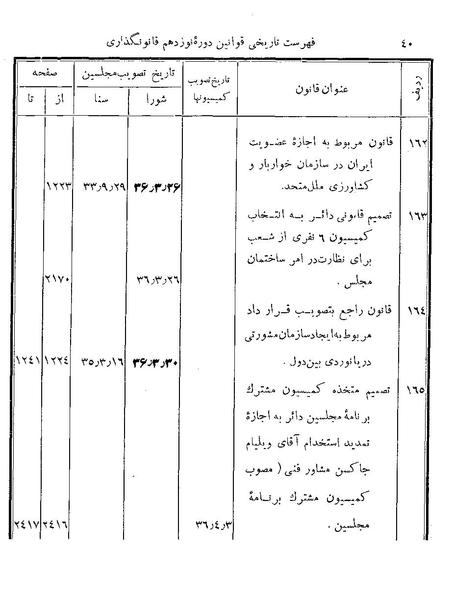 ٤٠ فهرست تاریخی قوانین دورهٔ نوزدهم قانونگذاری
ردیف عنوان قانون تاریخ تصویب کمیسیونها تاریخ تصویب مجلسین صفحه
شورا سنا از تا
١٦٢ قانون مربوط به اجازهٔ عضویت
ایران در سازمان خواربار و
کشاورزی ملل‌متحد. ۳۶٫۳٫۲۶ ۳۳٫۹٫۲۹ ۱۲۲۳
١٦٣ تصمیم قانونی دائر به انتخاب
کمیسیون ٦ نفری از شعب
برای نظارت‌در امر ساختمان
مجلس . ۳۶٫۳٫۲۶ ۲۱۷۰
١٦٤ قانون راجع بتصویب قرار داد
مربوط به‌ایجادسازمان‌مشورتی
دریانوردی بین‌دول . ۳۶٫۳٫۳۰ ۳۵٫۳٫۱۶ ۱۲۲٤ ۱۲٤۱
١٦٥ تصمیم متخذه کمیسیون مشترك
برنامهٔ مجلسین دائر به اجازهٔ
تمدید استخدام آقای ویلیام
جاکسن مشاور فنی ( مصوب
کمیسیون مشترك برنامهٔ
مجلسین . ۳۶٫٤٫۳ ۲٤۱۶ ۲٤۱۷